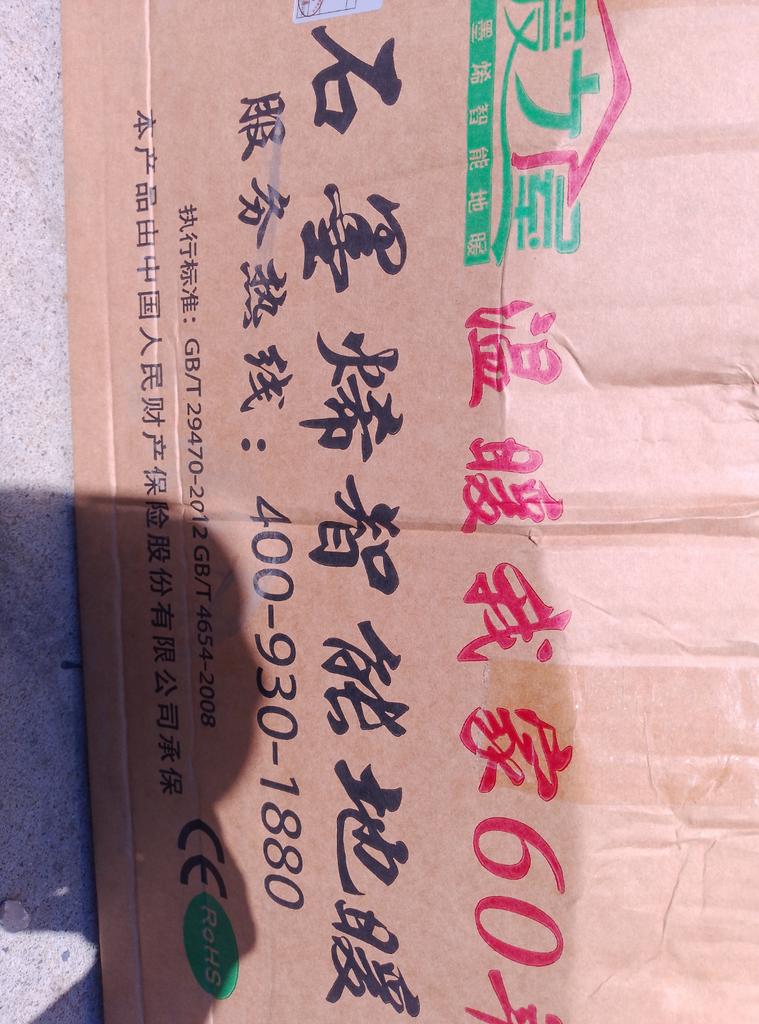 暖立屋
墨烯智能地暖
温暖我家60年
石墨烯智能地暖
服务热线：400-930-1880
执行标准：GB/T 29470-2012 GB/T 4654-2008
本产品由中国人民财产保险股份有限公司承保
CE
RoHS